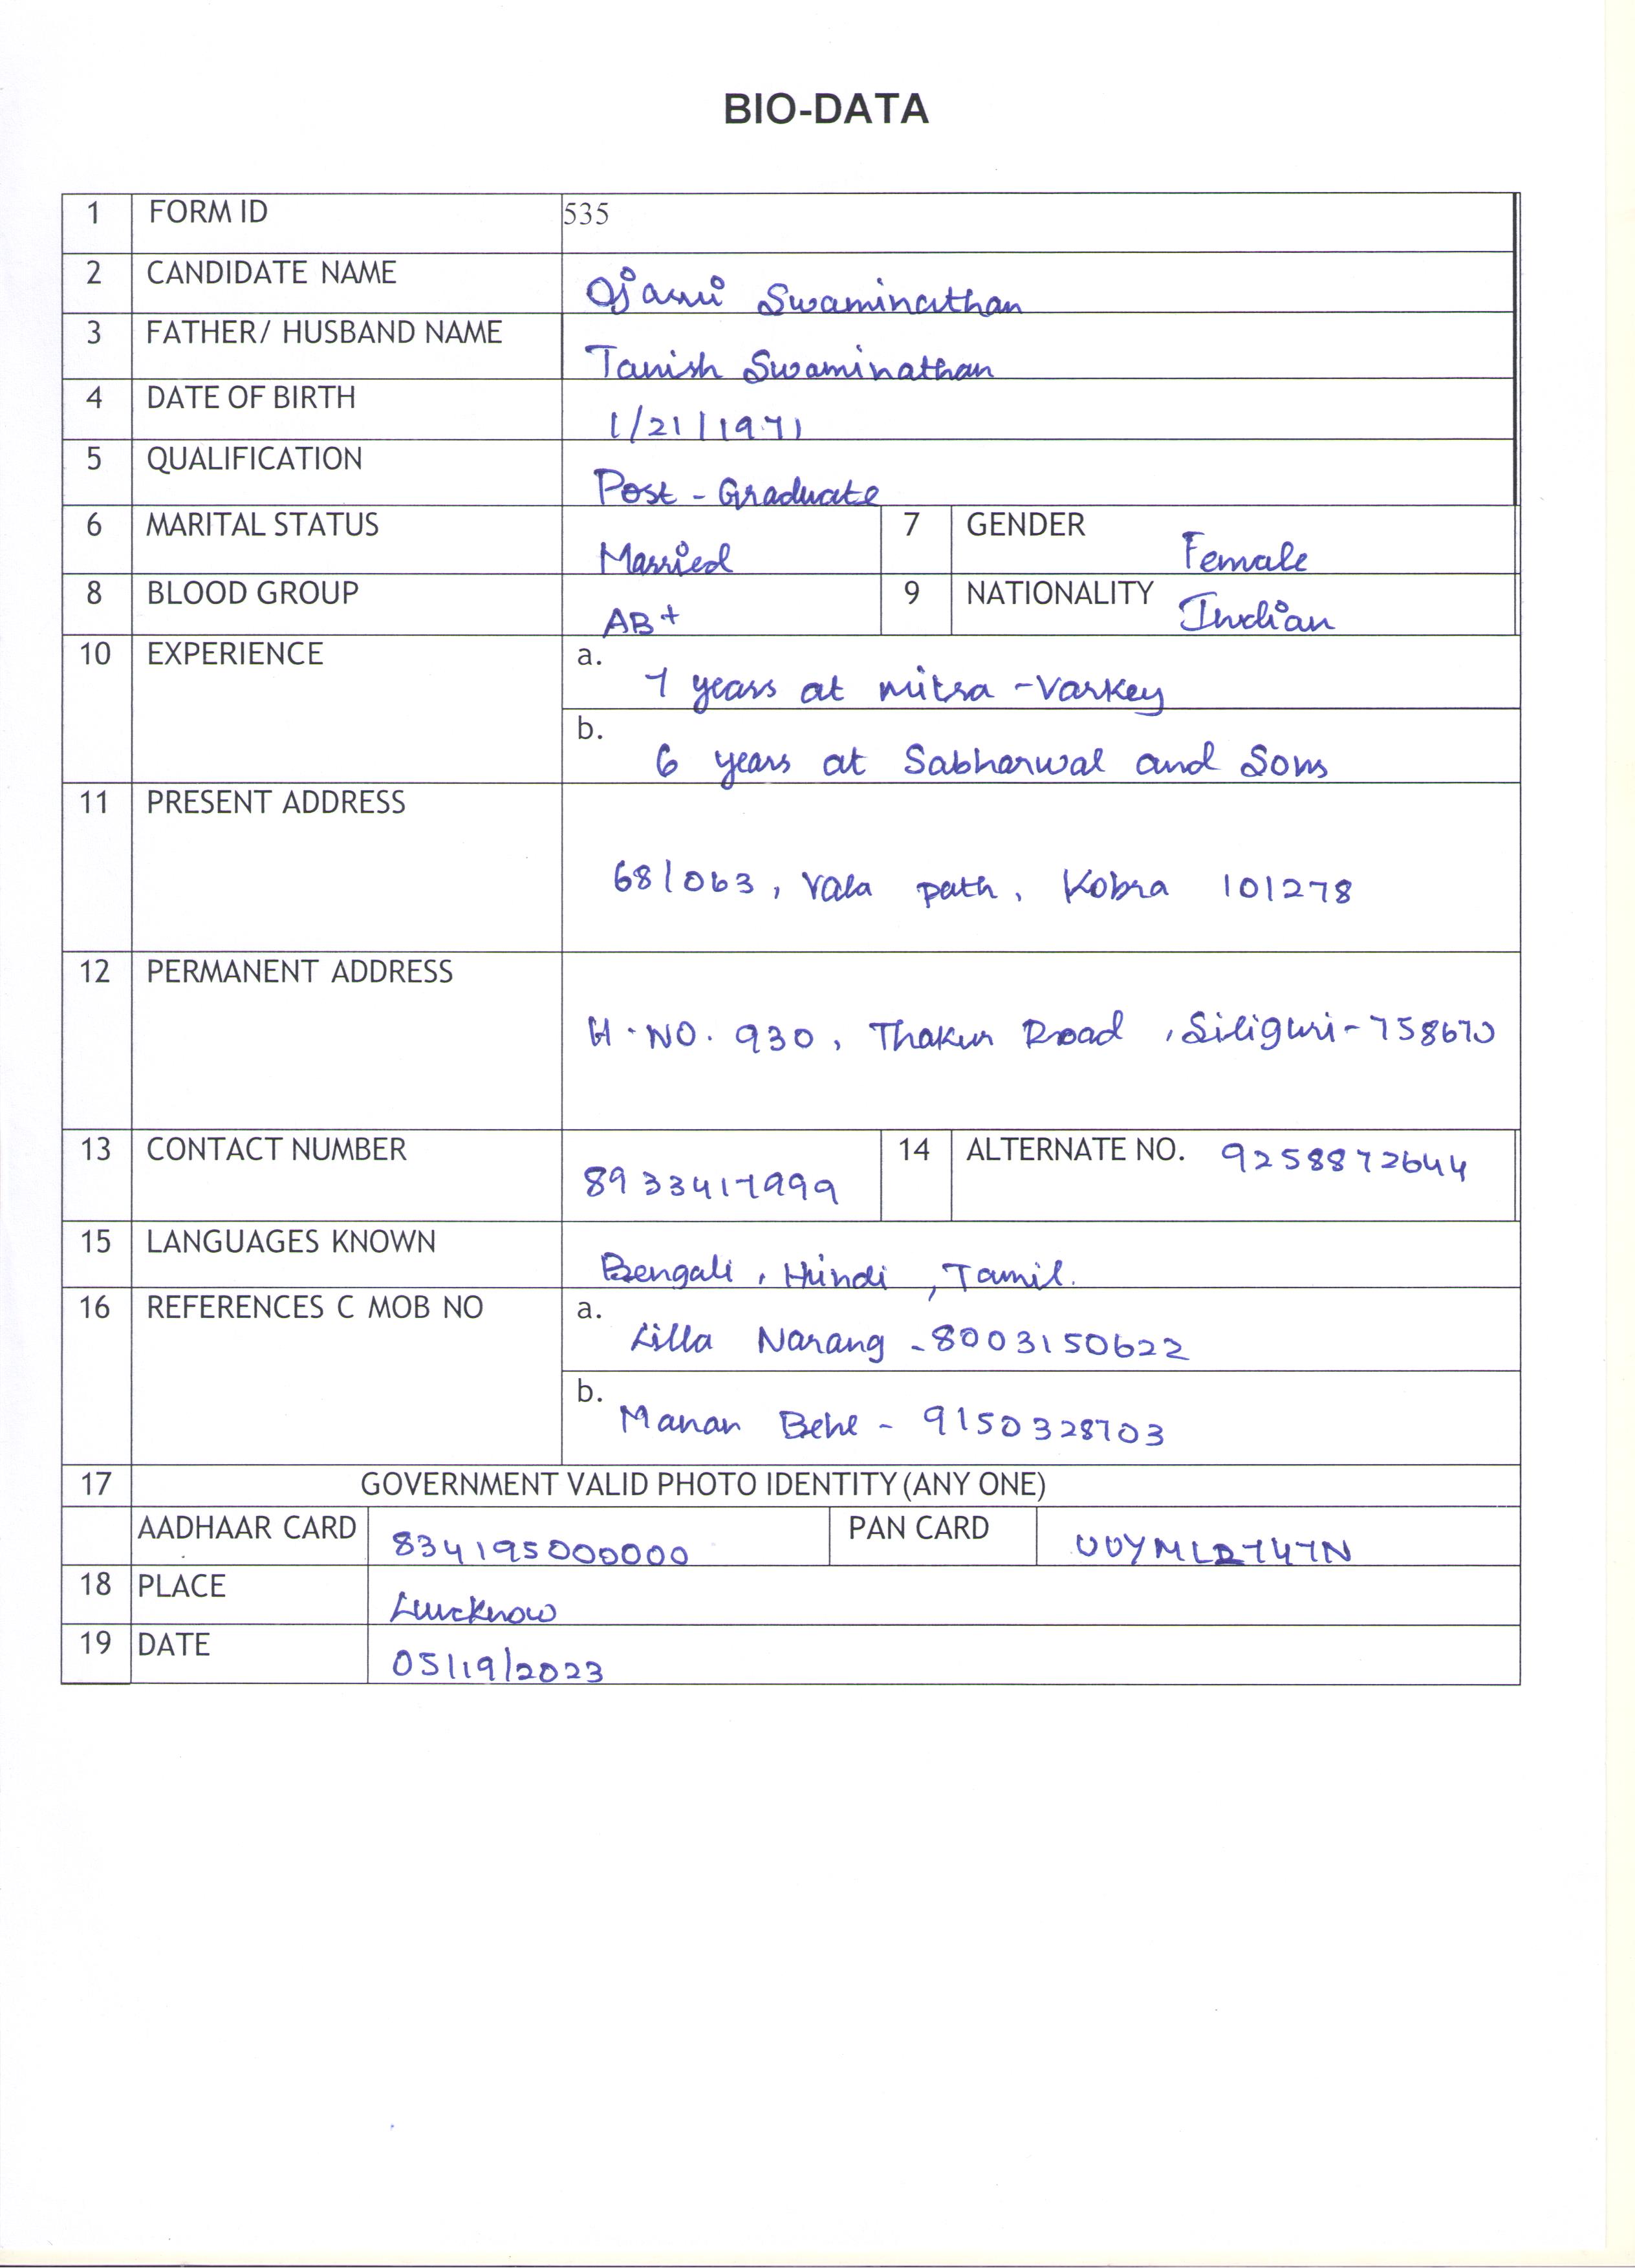 BIO-DATA
1 FORM ID 535
2 CANDIDATE NAME Ojasvi Swaminathan
3 FATHER/ HUSBAND NAME Tanish Swaminathan
4 DATE OF BIRTH 1/21/1971
5 QUALIFICATION Post-Graduate
6 MARITAL STATUS Married 7 GENDER Female
8 BLOOD GROUP AB+ 9 NATIONALITY Indian
10 EXPERIENCE a. 7 years at mitra-Varkey
b. 6 years at Sabharwal and Sons
11 PRESENT ADDRESS
68/063, Vala path, Kobra 101278
12 PERMANENT ADDRESS
H.NO. 930, Thakur Road, Siliguri-758670
13 CONTACT NUMBER 8933417999 14 ALTERNATE NO. 9258872644
15 LANGUAGES KNOWN Bengali, Hindi, Tamil.
16 REFERENCES C MOB NO a. Lilla Narang - 8003150622
b. Manan Behl - 9150328703
17 GOVERNMENT VALID PHOTO IDENTITY (ANY ONE)
AADHAAR CARD 834195000000 PAN CARD
18 PLACE Lucknow
19 DATE 05/19/2023